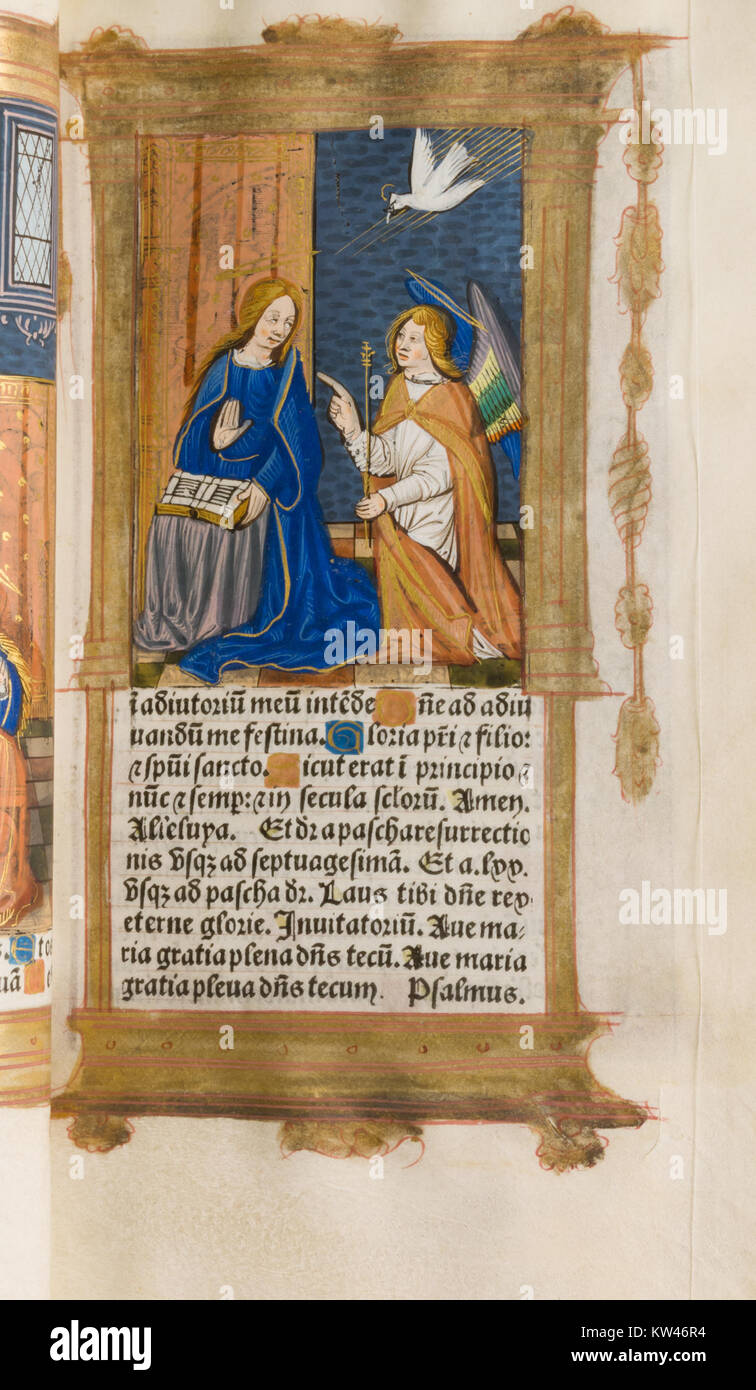 ī adiutoriū meū intēde ñe ad adiu
uandū me festina. Gloria pr̄i ⁊ filio:
⁊ spūi sancto. icut erat ī principio ⁊
nūc ⁊ semp: ⁊ in secula sclorū. Amen.
Alleluya. Et dr̄ a pascha resurrectio
nis vsqꝫ ad septuagesimā. Et a .lxx.
vsqꝫ ad pascha dr̄. Laus tibi dñe rex
eterne glorie. Inuitatoriū. Aue ma⸗
ria gratia plena dñs tecū. Aue maria
gratia pleua dñs tecum. Psalmus.
s. E to
uā
alamy
Image ID: KW46R4
www.alamy.com